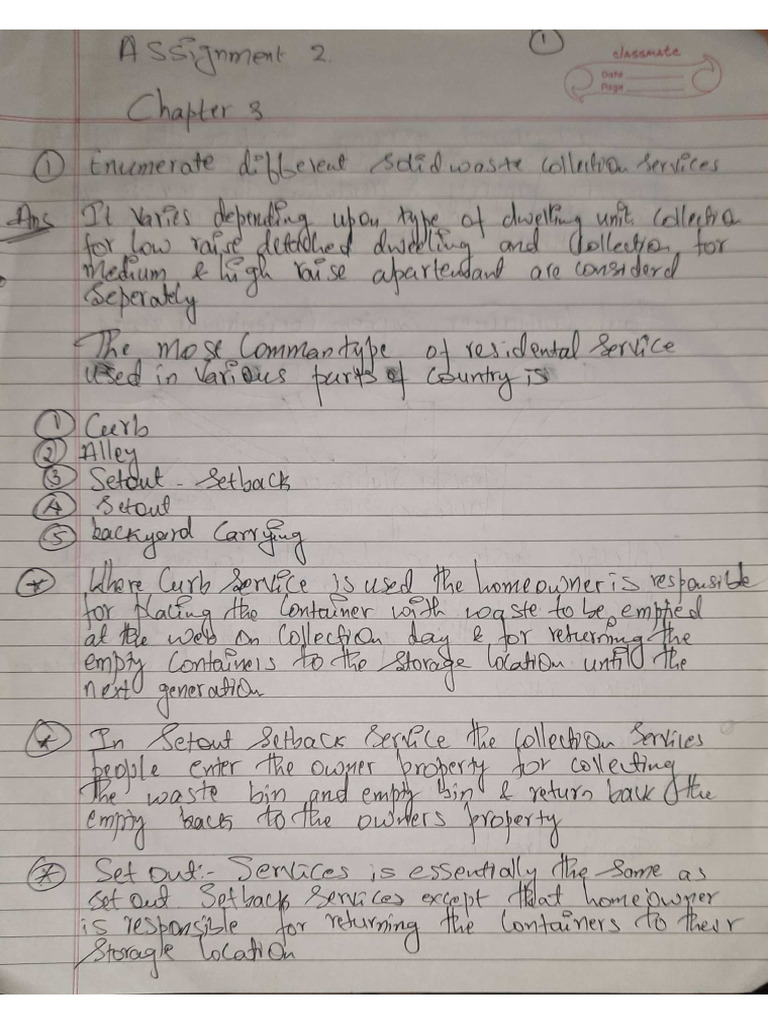 Assignment 2.
1
classmate
Date
Page
Chapter 3
① Enumerate different solid waste collection services
Ans It varies depending upon type of dwelling unit. Collectio
for low raise detached dwelling and Collection for
medium & high raise apartendant are considerd
Seperately
The most Comman type of residental service
used in various parts of country is
① Curb
② Alley
③ Setout - Setback
④ Setout
⑤ backyard Carrying
* Where Curb Service is used the homeowner is responsible
for plating the Container with waste to be empied
at the web on Collection day & for returning the
empty Containers to the storage location until the
next generation
* In Setout Setback Service the Collection Services
people enter the owner property for collecting
the waste bin and empty bin & return back the
empty back to the owners property
* Set out:- Services is essentially the same as
set out Setback Services except that homeowner
is responsible for returning the Containers to their
Storage location